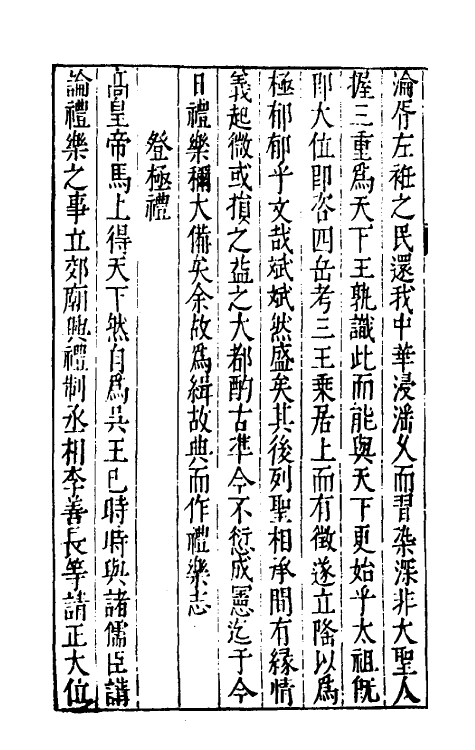 淪胥左袵之民還我中華浸淫久而習染深非大聖人
握三重爲天下王孰識此而能與天下更始乎太祖旣
即大位即咨四岳考三王乗居上而有徵遂立隆以爲
極郁郁乎文哉斌斌然盛矣其後列聖相承間有緣情
義起微或損之益之大都酌古準今不愆成憲迄于今
日禮樂彌大備矣余故爲緝故典而作禮樂志
登極禮
高皇帝馬上得天下然自爲吳王已時時與諸儒臣講
論禮樂之事立郊廟興禮制丞相李善長等請正大位